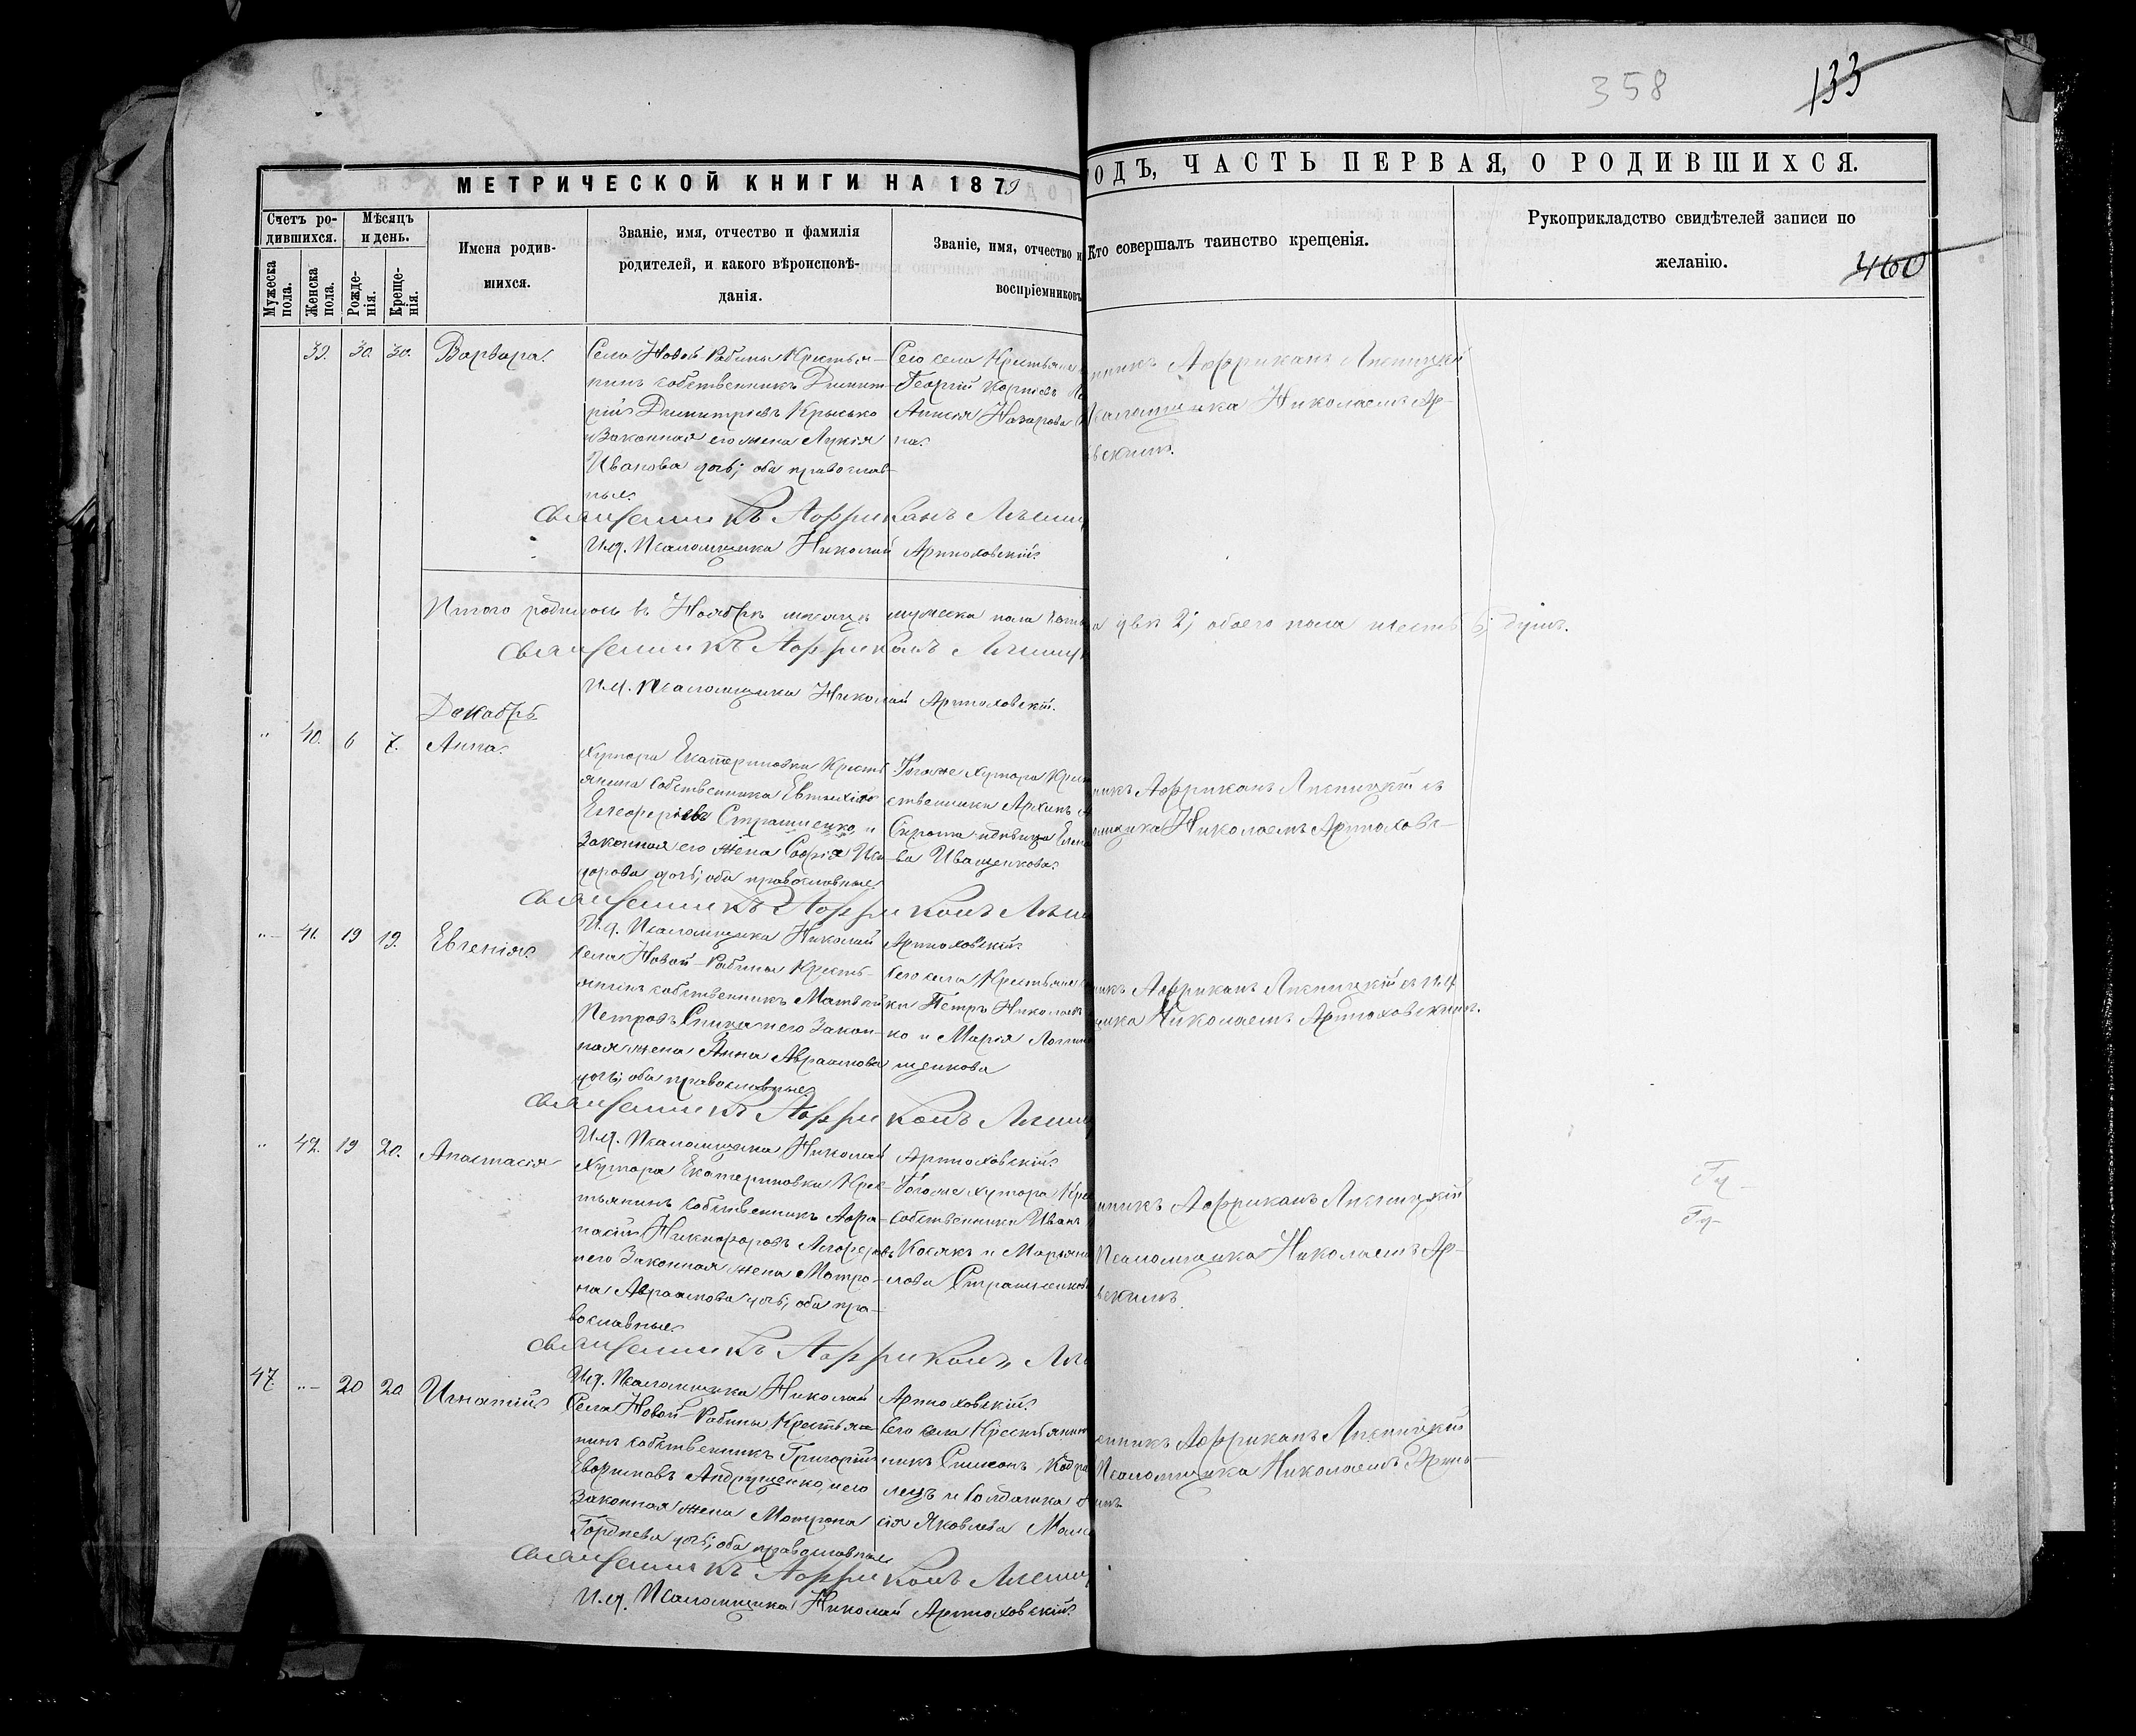 358
133
МЕТРИЧЕСКОЙ КНИГИ НА 1879
ОДЪ, ЧАСТЬ ПЕРВАЯ, О РОДИВШИХСЯ.
Счетъ ро-
дившихся.
Мужеска
пола.
Женска
пола.
Мѣсяцъ
и день.
Рожде-
нія.
Креще-
нія.
Имена родив-
шихся.
Званіе, имя, отчество и фамилія
родителей, и какого вѣроисповѣ-
данія.
Званіе, имя, отчество и
воспріемниковъ
Кто совершалъ таинство крещенія.
Рукоприкладство свидѣтелей записи по
желанію.
460
39. 30. 30. Варвара.
Села Новой-Рабины Крестья-
нинъ собственникъ Димит-
рій Димитріевъ Крысько
и Законная его жена Лукія
Иванова дочь; оба православ-
ные.
Сего села Крестьяне
Георгій Корніевъ
Анисія Назарова
на.
никъ Аффриканъ Лисницкій
Псаломщика Николаемъ Ар-
вскимъ.
Священникъ Аффриканъ
И.д. Псаломщика Николай Артюховскій.
Итого родилось въ Ноябрѣ мѣсяцѣ мужеска пола
а двѣ 2; обоего пола шесть 6; душъ.
Священникъ Аффриканъ
И.д. Псаломщика Николай Артюховскій.
Декабрь
" 40. 6 7. Анна.
Хутора Екатериновки Кресть
янина собственника Евтихій
Елеоферіевъ Страшненко и
Законная его жена Софія Иси-
дорова дочь; оба православные.
Тогоже Хутора
ственники Архипъ
Сирота и дѣвица
ва Иващенкова.
никъ Аффриканъ Лисницкій съ
омщика Николаемъ Артюховс-
Священникъ Аффриканъ
И.д. Псаломщика Николай Артюховскій.
" 41. 19 19. Евгенія.
Села Новой-Рабины Кресть-
янинъ собственникъ Матвѣй
Петровъ Спица и его Закон-
ная жена Анна Авраамова
дочь; оба православные.
Сего села Крестьяне
ки Петръ Николаевъ
ко и Марія
щенкова
никъ Аффриканъ Лисницкій съ И.д.
щика Николаемъ Артюховскимъ.
Священникъ Аффриканъ
И.д. Псаломщика Николай Артюховскій.
" 42. 19 20. Анастасія
Хутора Екатериновки Крес-
тьянинъ собственникъ Афа-
насій Никифоровъ
и его Законная жена Матро-
на Авраамова дочь; оба пра-
вославные.
Тогоже Хутора
собственники Иванъ
Косякъ и
лова Страшненкова
нникъ Аффриканъ Лисницкій
Псаломщика Николаемъ Ар-
вскимъ.
Священникъ Аффриканъ
И.д. Псаломщика Николай Артюховскій.
47. " 20 20 Игнатій
Села Новой-Рабины Крестьян-
нинъ собственникъ Григорій
Евфимовъ Андрущенко, и его
Законная жена Матрона
Гордѣева дочь; оба православные
Сего села Крестьянинъ
никъ Симеонъ
лецъ и Солдатка
сія Яковлева
енникъ Аффриканъ Лисницкій
Псаломщика Николаемъ Артю-
имъ
Священникъ Аффриканъ
И.д. Псаломщика Николай Артюховскій.